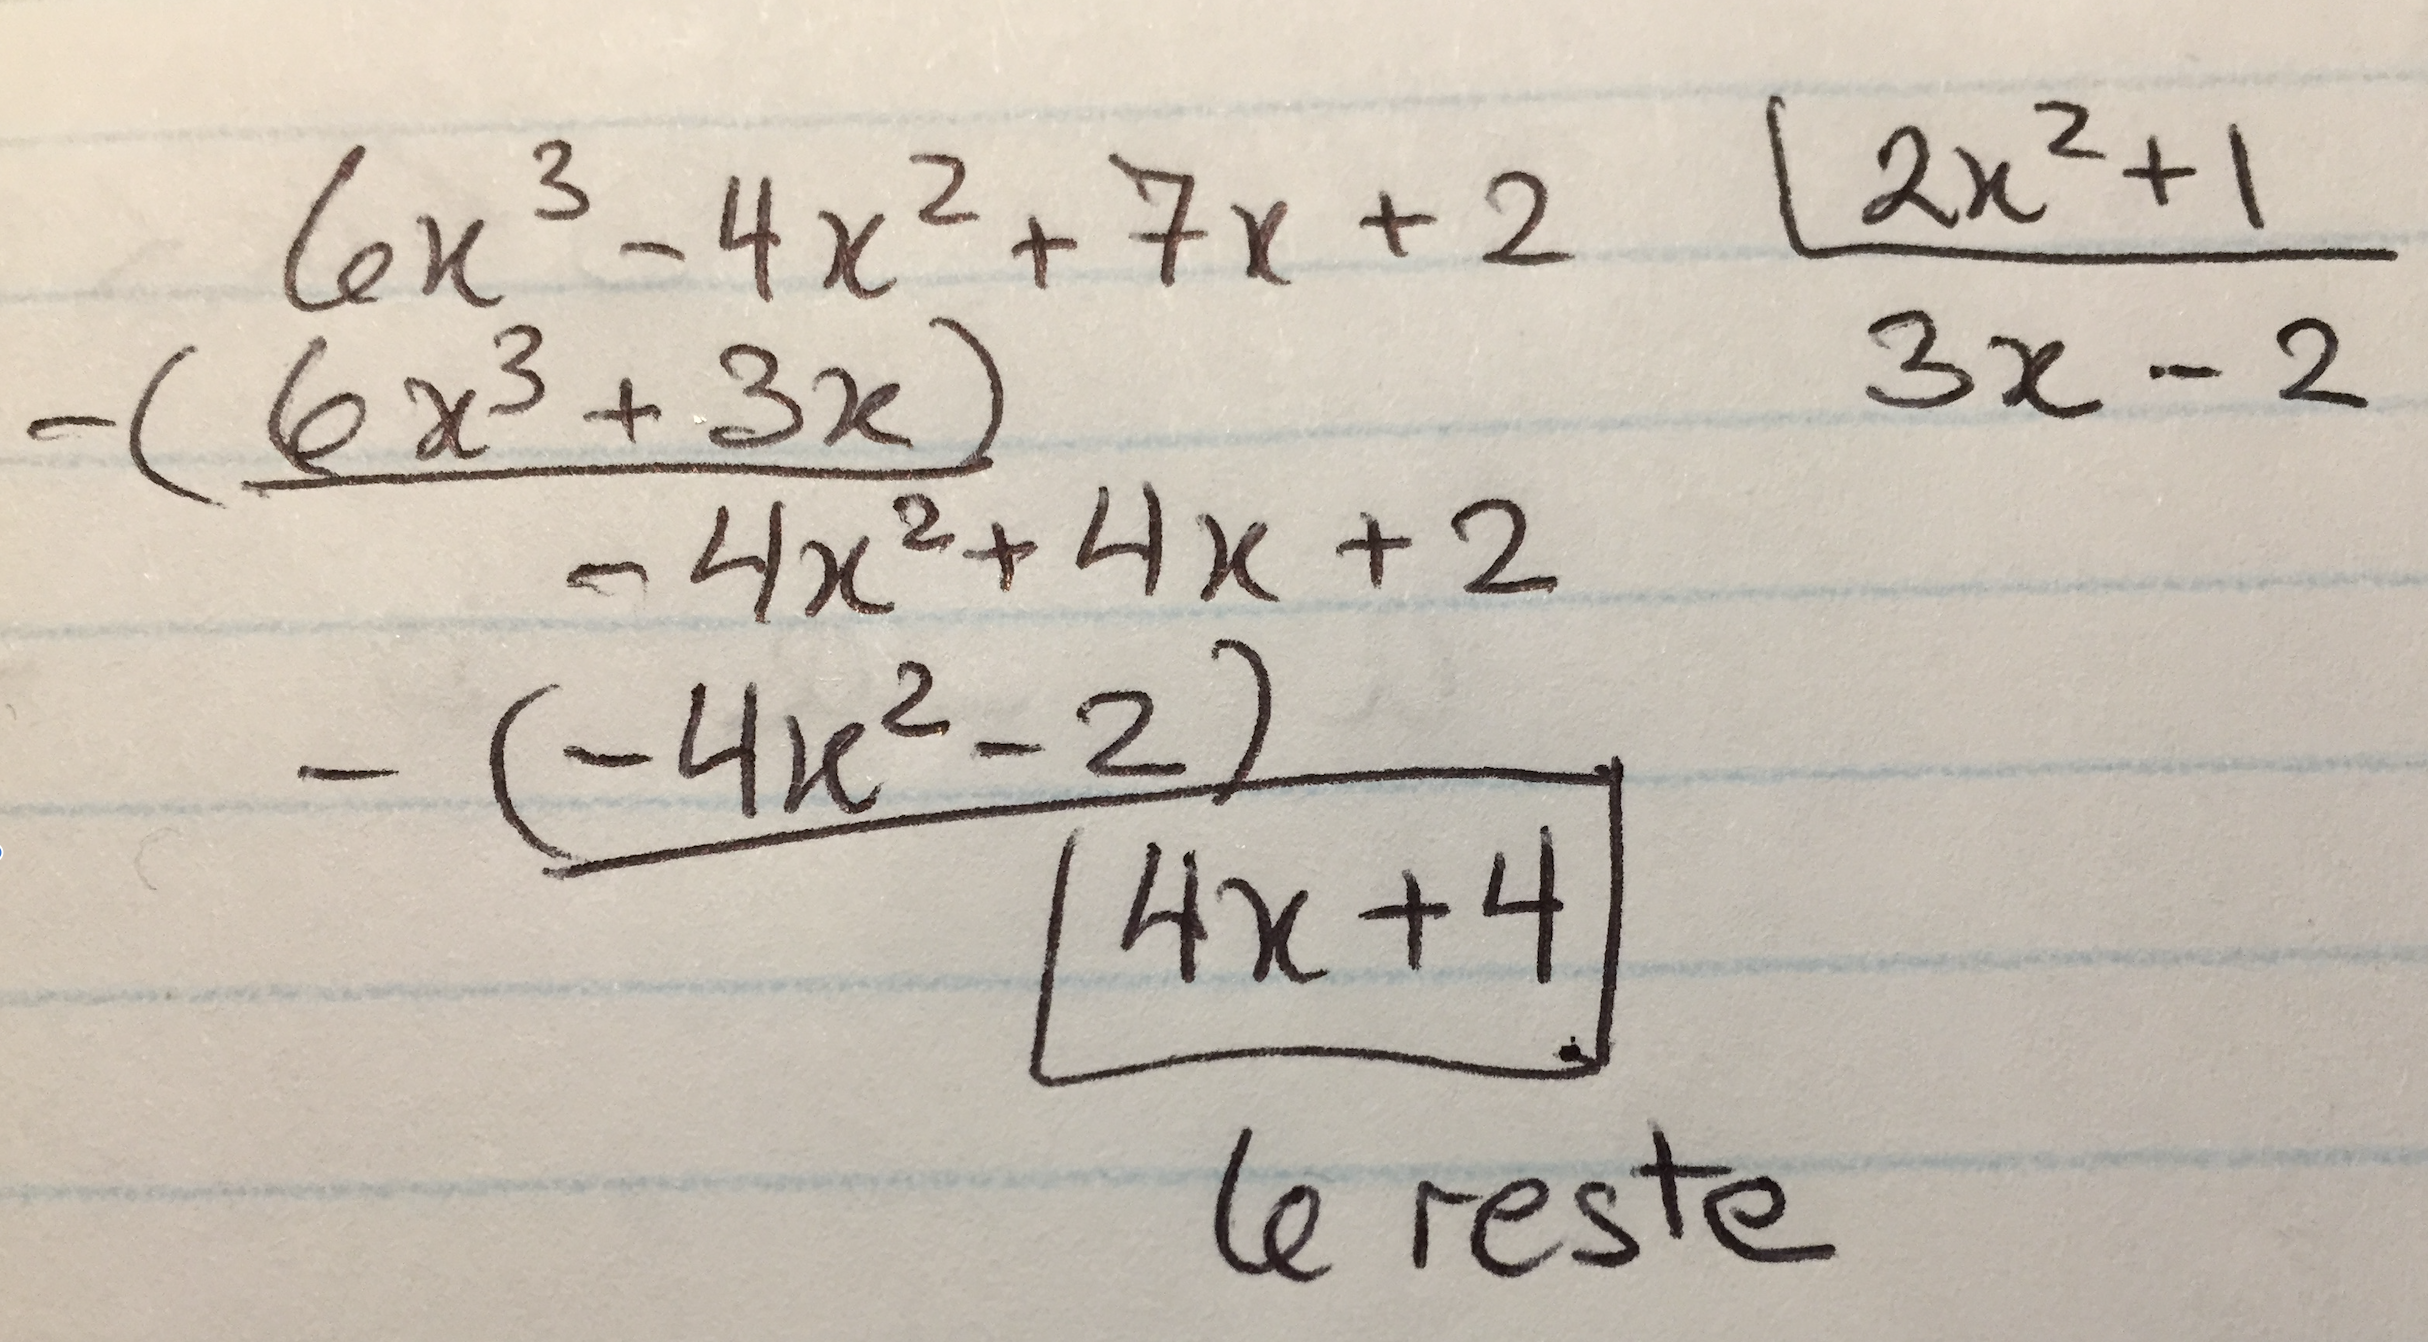 6x³ - 4x² + 7x + 2 2x² + 1
-(6x³ + 3x) 3x - 2
- 4x² + 4x + 2
- (-4x² - 2)
4x + 4
le reste